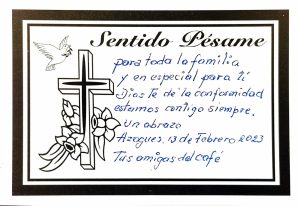 Sentido Pésame
para toda la familia
y en especial para ti
Dios Te de la conformidad
estamos contigo siempre.
Un abrazo
Azogues, 13 de Febrero 2023
Tus amigas del café